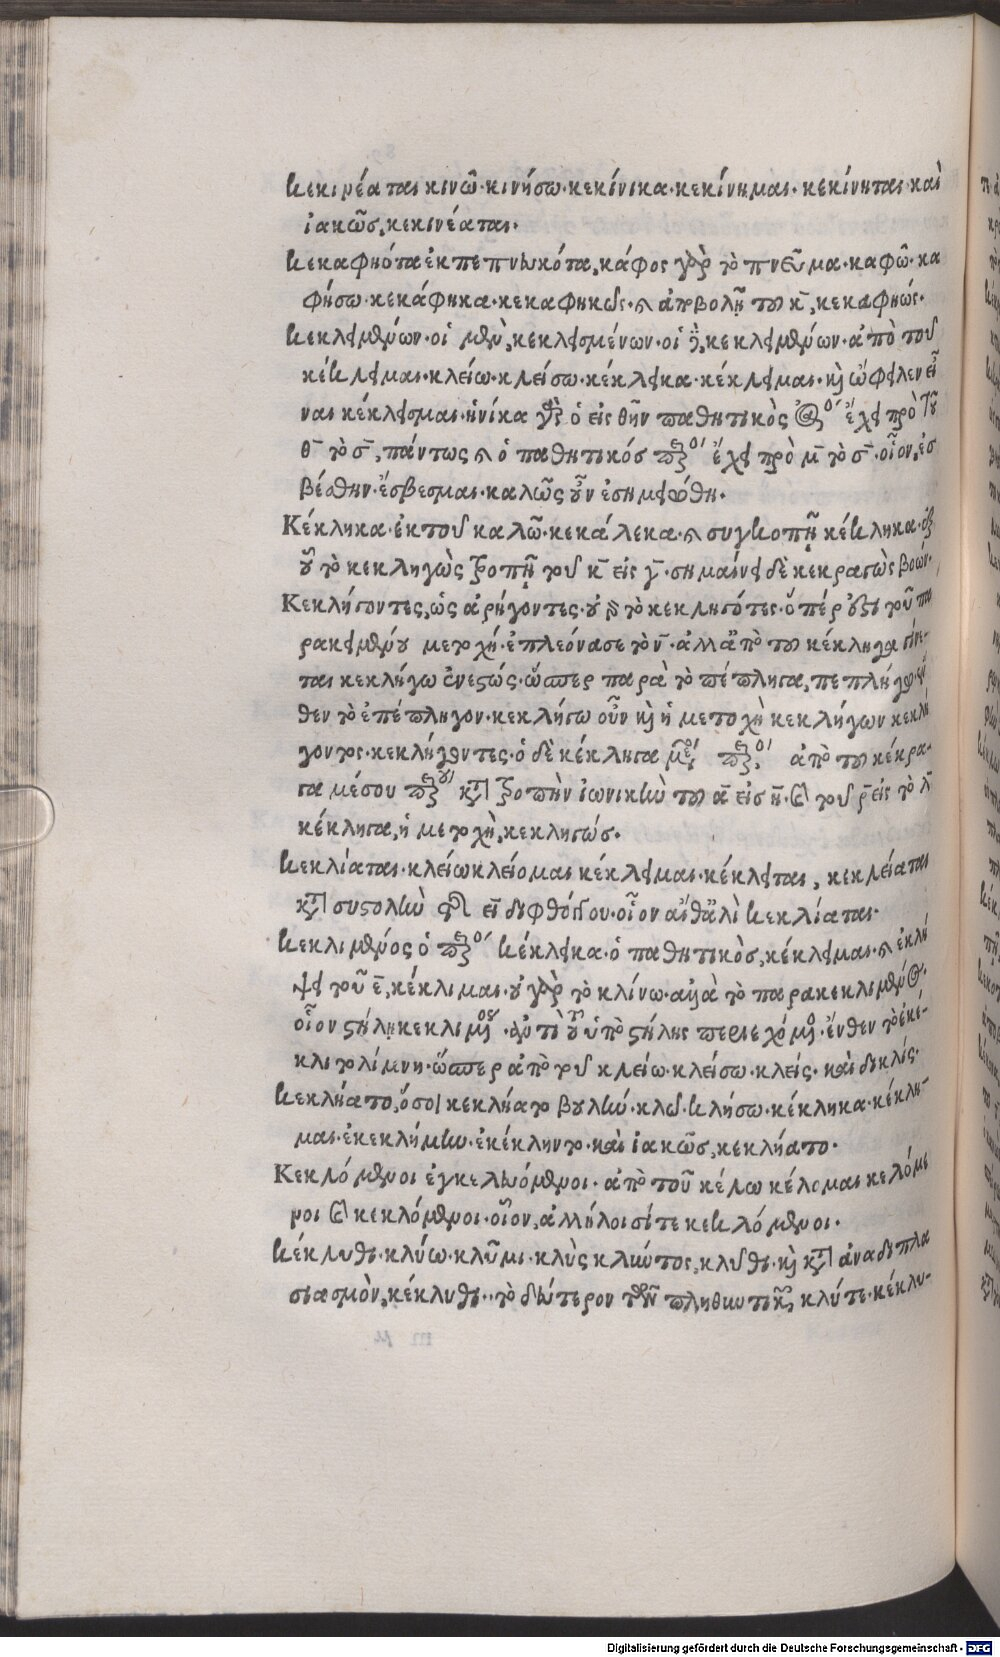 κεκινέαται κινῶ· κινήσω· κεκίνικα· κεκίνημαι· κεκίνηται· καὶ
ἰακῶς, κεκινέαται·
κεκαφηότα ἐκπεπνευκότα, κάφος γὰρ τὸ πνεῦμα· καφῶ· κα
φήσω· κεκάφηκα· κεκαφηκὼς· καὶ ἀποβολῇ τοῦ κ̄, κεκαφηώς·
κεκλειμένων· οἱ μὲν, κεκλεισμένων· οἱ δὲ, κεκλειμένων· ἀπὸ τοῦ
κέκλειμαι· κλείω· κλείσω· κέκλεικα· κέκλειμαι· καὶ ὤφειλεν εἶ
ναι κέκλεισμαι· ἡνίκα γὰρ ὁ εἰς θην παθητικὸς ἔχει πρὸ τοῦ
θ̄ τὸ σ̄, πάντως καὶ ὁ παθητικός παρακείμενος ἔχει πρὸ μ̄ τὸ σ̄· οἷον, ἐσ
βέσθην· ἔσβεσμαι· καλῶς οὖν ἐσημειώθη·
Κέκληκα· ἐκ τοῦ καλῶ· κεκάλεκα· καὶ συγκοπῇ κέκληκα· ἐξ
οὗ τὸ κεκληγὼς τροπῇ τοῦ κ̄ εἰς γ̄· σημαίνει δὲ κεκραγὼς βοών·
Κεκλήγοντες, ὡς ἀρήγοντες· οὐ γὰρ τὸ κεκληγότες· ὅπέρ ἐστι τοῦ πα
ρακειμένου μετοχή· ἐπλεόνασε τὸ ν̄· ἀλλ' ἀπὸ τοῦ κέκληγα γίνε-
ται κεκλήγω ἐνεστώς· ὥσπερ παρὰ τὸ πέπληγα, πεπλήγω· ὅ
θεν τὸ ἐπέπληγον· κεκλήγω οὖν καὶ ἡ μετοχὴ κεκλήγων κεκλή
γοντος· κεκλήγοντες· ὁ δὲ κέκληγα μέσος παρακείμενος, ἀπὸ τοῦ κέκρα-
γα μέσου παρακειμένου κατὰ τροπὴν ἰωνικὴν τοῦ ᾱ εἰς η̄· καὶ τοῦ ρ̄ εἰς τὸ λ̄
κέκληγα, ἡ μετοχὴ, κεκληγώς·
κεκλίαται· κλείω κλείομαι κέκλειμαι· κέκλειται, κεκλείαται
κατὰ συστολὴν τῆς ει διφθόγγου· οἷον αἰθάλι κεκλίαται·
κεκλιμένος ὁ παρακείμενος κέκλεικα· ὁ παθητικὸς, κέκλειμαι· καὶ ἐκλεί
ψει τοῦ ε̄, κέκλιμαι· οὐ γὰρ τὸ κλίνω· ἀλλὰ τὸ παρακεκλιμένος·
οἷον στήλῃ κεκλιμένος· ἀντὶ τοῦ ὑπὸ στήλης περιεχόμενος· ἔνθεν τὸ ἐκέ-
κλιτο λίμνη· ὥσπερ ἀπὸ τοῦ κλείω· κλείσω· κλείς· καὶ δικλίς·
κεκλήατο, ὅσοι κεκλήατο βουλήν· κλῶ· κλήσω· κέκληκα· κέκλη-
μαι· ἐκεκλήμην· ἐκέκληντο· καὶ ἰακῶς, κεκλήατο·
Κεκλόμενοι ἐγκελευόμενοι· ἀπὸ τοῦ κέλω κέλομαι κελόμε
νοι καὶ κεκλόμενοι· οἷον, ἀλλήλοισί τε κεκλόμενοι·
κέκλυθι· κλύω· κλῦμι· κλὺς κλύντος, κλῦθι· καὶ κατὰ ἀναδιπλα
σιασμὸν, κέκλυθι·· τὸ δεύτερον τῶν πληθυντικῶν, κλύτε· κέκλυ-
Digitalisierung gefördert durch die Deutsche Forschungsgemeinschaft - DFG